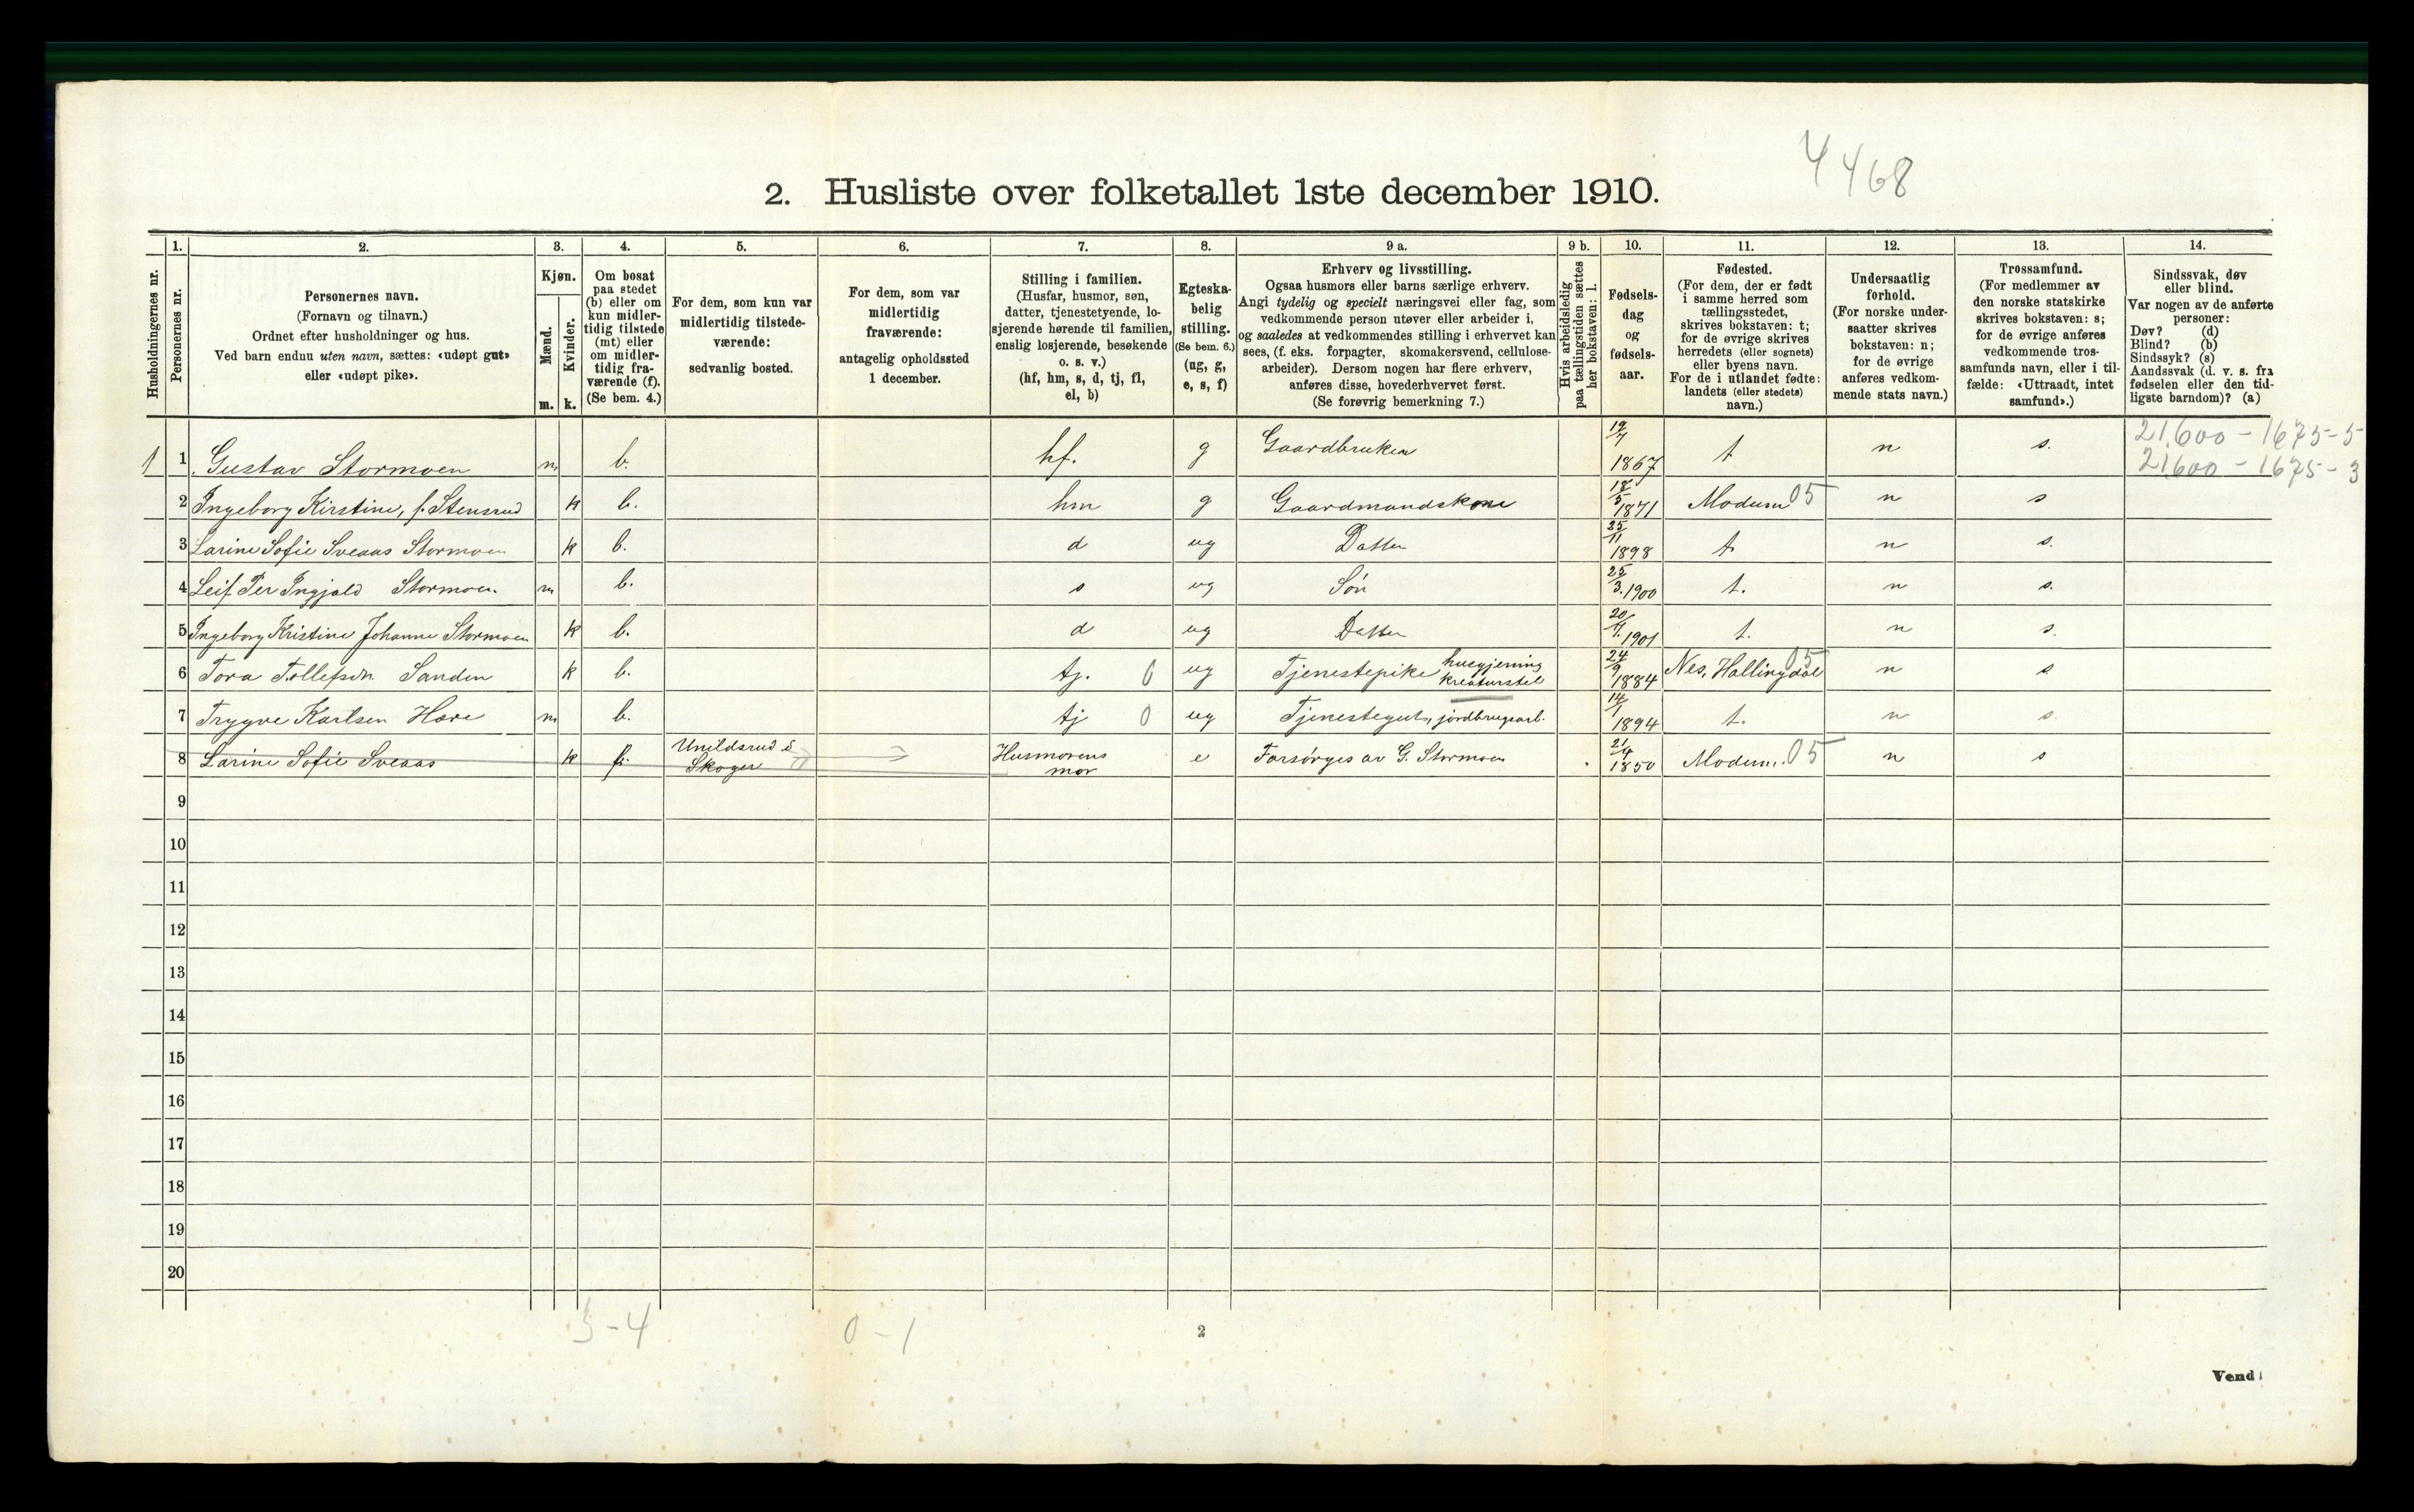 4468
2. Husliste over folketallet 1ste december 1910.
1. 2. 3. 4. 5. 6. 7. 8. 9 a. 9 b. 10. 11. 12. 13. 14.
Husholdningernes nr.
Personernes nr.
Personernes navn.
(Fornavn og tilnavn.)
Ordnet efter husholdninger og hus.
Ved barn endnu uten navn, sættes: «udøpt gut»
eller «udøpt pike».
Kjøn.
Mænd.
Kvinder.
m. k.
Om bosat
paa stedet
(b) eller om
kun midler-
tidig tilstede
(mt) eller
om midler-
tidig fra-
værende (f).
(Se bem. 4.)
For dem, som kun var
midlertidig tilstede-
værende:
sedvanlig bosted.
For dem, som var
midlertidig
fraværende:
antagelig opholdssted
1 december.
Stilling i familien.
(Husfar, husmor, søn,
datter, tjenestetyende, lo-
sjerende hørende til familien,
enslig losjerende, besøkende
o. s. v.)
(hf, hm, s, d, tj, fl,
el, b)
Egteska-
belig
stilling.
(Se bem. 6.)
(ug, g,
e, s, f)
Erhverv og livsstilling.
Ogsaa husmors eller barns særlige erhverv.
Angi tydelig og specielt næringsvei eller fag, som
vedkommende person utøver eller arbeider i,
og saaledes at vedkommendes stilling i erhvervet kan
sees, (f. eks. forpagter, skomakersvend, cellulose-
arbeider). Dersom nogen har flere erhverv,
anføres disse, hovederhvervet først.
(Se forøvrig bemerkning 7.)
Hvis arbeidsledig
paa tællingstiden sættes
her bokstaven: l.
Fødsels-
dag
og
fødsels-
aar.
Fødested.
(For dem, der er født
i samme herred som
tællingsstedet,
skrives bokstaven: t;
for de øvrige skrives
herredets (eller sognets)
eller byens navn.
For de i utlandet fødte:
landets (eller stedets)
navn.)
Undersaatlig
forhold.
(For norske under-
saatter skrives
bokstaven: n;
for de øvrige
anføres vedkom-
mende stats navn.)
Trossamfund.
(For medlemmer av
den norske statskirke
skrives bokstaven: s;
for de øvrige anføres
vedkommende tros-
samfunds navn, eller i til-
fælde: «Uttraadt, intet
samfund».)
Sindssvak, døv
eller blind.
Var nogen av de anførte
personer:
Døv? (d)
Blind? (b)
Sindssyk? (s)
Aandssvak (d. v. s. fra
fødselen eller den tid-
ligste barndom)? (a)
1 1 Gustav Stormoen m b. hf. g Gaardbruker 19/7 1867 t n s. 21.600 - 1675-5
21600 - 1675-3
2 Ingeborg Kirstine, f. Stensrud k b. hm g Gaardmandskone 18/5 1871 Modum 05 n s
3 Larine Sofie Sveaas Stormoen k b. d ug Datter 25/11 1898 t. n s.
4 Leif Per Ingjald Stormoen m b. s ug Søn 25/3 1900 t. n s.
5 Ingeborg Kristine Johanne Stormoen k b. d ug Datter 20/ 1901 t. n s.
6 Tora Tollefsdn. Sanden k b. tj. 0 ug Tjenestepike husgjerning kreaturstel 24/9 1884 Nes, Hallingdal 05 n s
7 Trygve Karlsen Hære m b. tj 0 ug Tjenestegut, jordbrugsarb. 14/1 1894 t. n s.
8 Larine Sofie Sveaas k f. i Skoger Husmorens mor e Forsørges av G. Stormoen 21/4 1850 Modum. 05 n s
9
10
11
12
13
14
15
16
17
18
19
20
3-4 0-1
2
Vend!